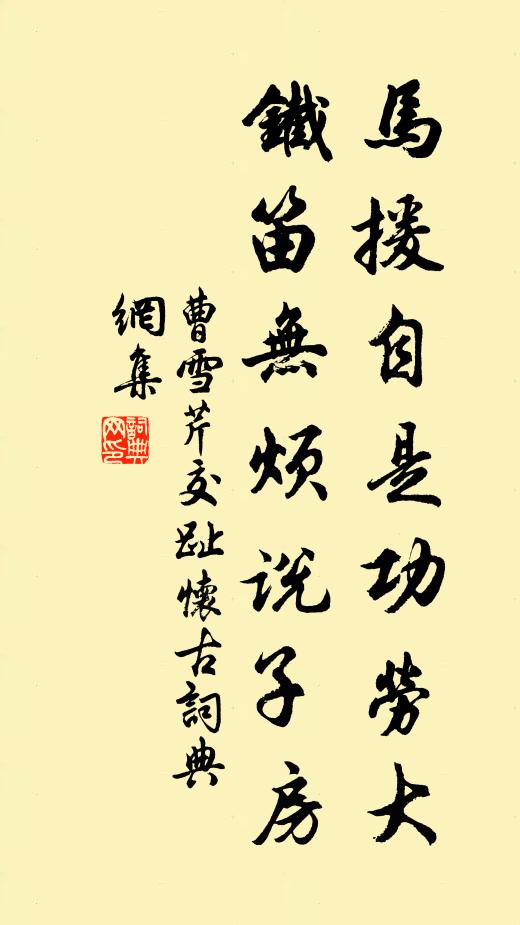 馬援自是功勞大
鐵笛無煩說子房
曹雪芹交趾懷古詞典
網集
詞典網印